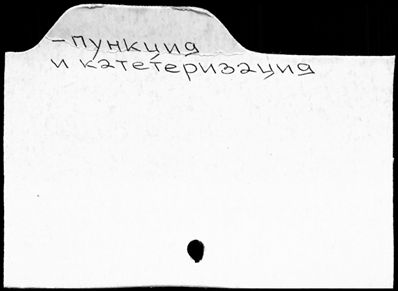 -пункция
и катетеризация